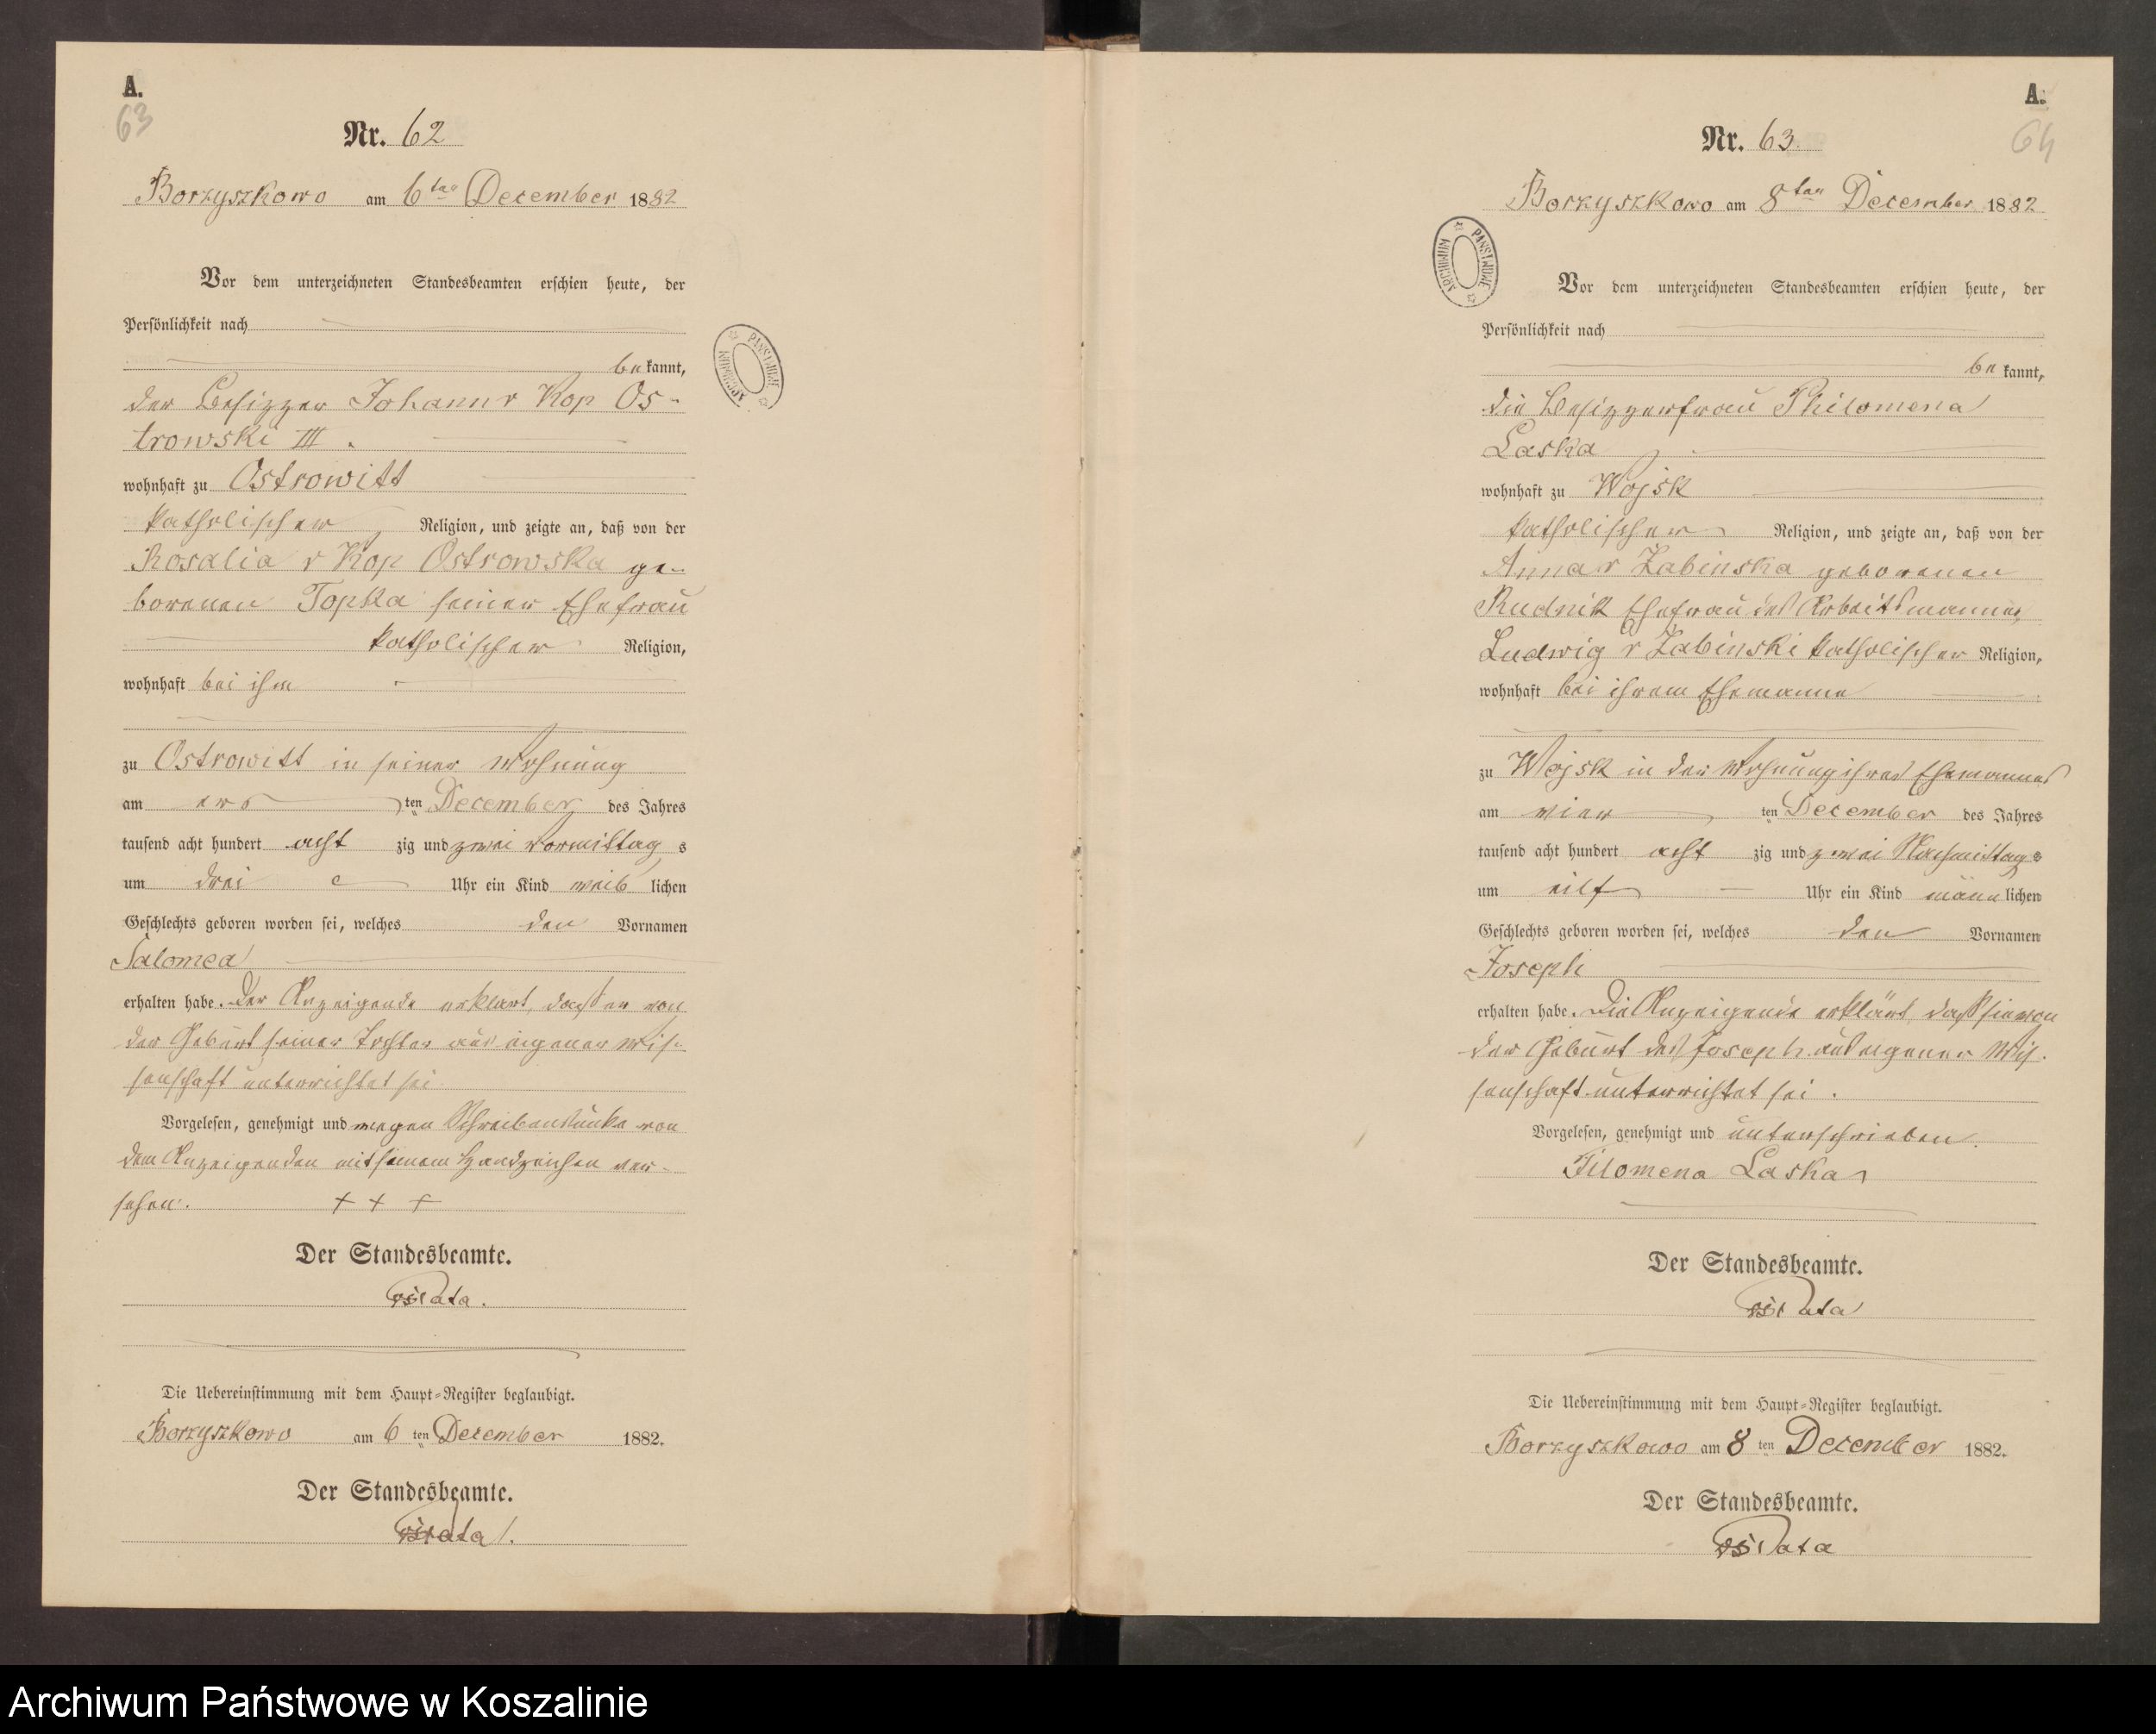 A.
63
Nr. 62
Borzyszkowo am 6ten December 1882
Vor dem unterzeichneten Standesbeamten erschien heute, der
Persönlichkeit nach
bekannt,
der Besizzer Johann v Kop Os-
trowski III.
wohnhaft zu Ostrowitt
katholischer Religion, und zeigte an, daß von der
Rosalia v Kop Ostrowska ge-
borenen Topka seiner Ehefrau
katholischer Religion,
wohnhaft bei ihm
zu Ostrowitt in seiner Wohnung
am ers ten December des Jahres
tausend acht hundert acht zig und zwei Vormittag s
um drei Uhr ein Kind weib lichen
Geschlechts geboren worden sei, welches den Vornamen
Salomea
erhalten habe. Der Anzeigende erklärt, daß er von
der Geburt seiner Tochter aus eigener Wis-
senschaft unterrichtet sei
Vorgelesen, genehmigt und wegen Schreibensunkunde von
dem Anzeigenden mit seinem Handzeichen ver-
sehen. + + +
Der Standesbeamte.
Die Uebereinstimmung mit dem Haupt-Register beglaubigt.
Borzyszkowo am 6 ten December 1882.
Der Standesbeamte.
ARCHIWUM PAŃSTWOWE
A.
64
Nr. 63
Borzyszkowo am 8ten December 1882
ARCHIWUM PAŃSTWOWE
Vor dem unterzeichneten Standesbeamten erschien heute, der
Persönlichkeit nach
bekannt,
die Besizzerfrau Philomena
Laska
wohnhaft zu Wojsk
katholischer Religion, und zeigte an, daß von der
Anna v Zabinska geborenen
Rudnik Ehefrau des Arbeitsmannes
Ludwig v Zabinski katholischer Religion,
wohnhaft bei ihrem Ehemanne
zu Wojsk in der Wohnung ihres Ehemannes
am vier ten December des Jahres
tausend acht hundert acht zig und zwei Nachmittag s
um eilf Uhr ein Kind männ lichen
Geschlechts geboren worden sei, welches den Vornamen
Joseph
erhalten habe. Die Anzeigende erklärt, daß sie von
der Geburt des Joseph aus eigener Wis-
senschaft unterrichtet sei.
Vorgelesen, genehmigt und unterschrieben.
Filomena Laska
Der Standesbeamte.
Die Uebereinstimmung mit dem Haupt-Register beglaubigt.
Borzyszkowo am 8 ten December 1882.
Der Standesbeamte.
Archiwum Państwowe w Koszalinie